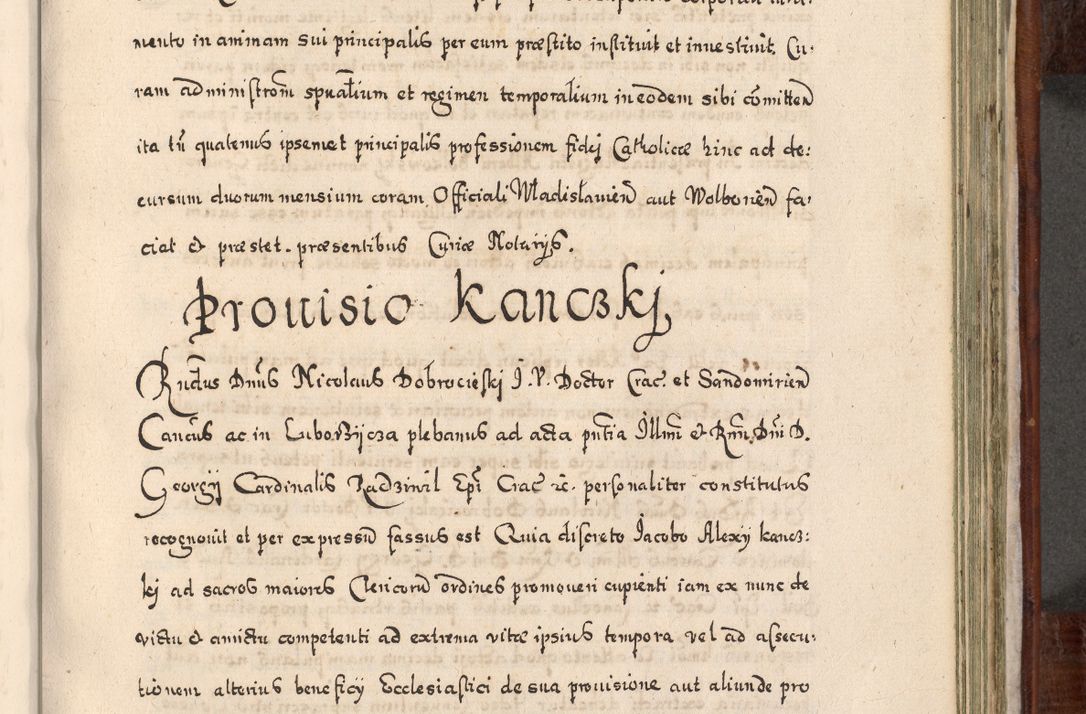 mento in animam sui principalis per eum præstito instituit et investivit. Cu:
ram administrom̃ spũalium et regimen temporalium in eodem sibi com̃itteñ
ita tñ quatenus ipsemet principalis professionem fidej Catholicæ hinc ad de:
cursum duorum mensium coram Officiali Wladislavieñ aut Wolborieñ fa:
ciat et præstet. præsentibus Curiæ Notarijs.
Provisio Kanczkj
Rndus Dnus Nicolaus Dobrocieskj J. V. Doctor Crac. et Sandomirieñ
Cancus ac in Luborzijcza plebanus ad acta pñtia Illm̃i et Rm̃i Dñi D.
Georgij Cardinalis Radziwil Epi Crac rc. personaliter constitutus
recognovit et per expressũ fassus est Quia discreto Jacobo Alexij Kancz:
kj ad sacros maiores Clericorũ ordines promoveri cupienti iam ex nunc de
victu et amictu competenti ad extrema vitæ ipsius tempora vel ad assecu:
tionem alterius beneficij Ecclesiastici de sua provisione aut aliunde pro